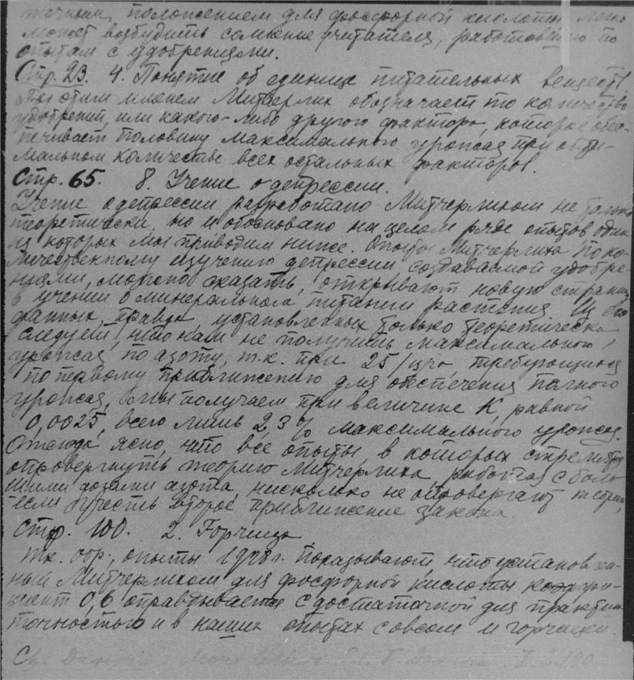 точным, положением для фосфорной кислоты, легко
может возбудить сомнение читателя, работавшего по
опытам с удобрениями.
Стр. 23. 4. Понятие об единице питательных веществ.
Под этим именем Митчерлих обозначает то количество
удобрений, или какого-либо другого фактора, которое обес-
печивает половину максимального урожая при опти-
мальном количестве всех остальных факторов.
Стр. 65. 8. Учение о депрессии.
Учение о депрессии разработано Митчерлихом не только
теоретически, но и обосновано на целом ряде опытов, один
из которых мы приводим ниже. Опыты Митчерлиха по ко-
личественному изучению депрессии создаваемой удобре-
ниями, можно сказать, открывают новую страницу
в учении о минеральном питании растения. Из
данных, правда, установленных только теоретически
следует, что нам не получить максимального
урожая по азоту, т.к. при 25 требующихся
по первому приближению для обеспечения полного
урожая, мы получаем при величине К, равной
0,0025, всего лишь 23% максимального урожая.
Отсюда ясно, что все опыты, в которых стремятся
опровергнуть теорию Митчерлиха, работая с боль-
шими дозами азота нисколько не опровергают теории,
если учесть второе приближение закона
Стр. 100. 2. Горчица
опыты 1928г. показывают, что установлен-
ный Митчерлихом для фосфорной кислоты коэффи-
циент 0,6 оправдывается с достаточной для практики
точностью и в наших опытах с овсом и горчицей.